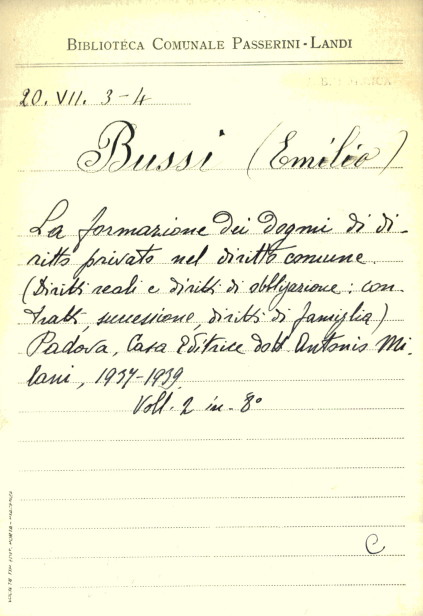 BIBLIOTECA COMUNALE PASSERINI-LANDI
20. VII. 3-4
Bussi (Emilio)
La formazione dei dogmi di di-
ritto privato nel diritto comune.
(Diritti reali e diritti di obbligazione: con-
tratti, successione, diritti di famiglia)
Padova, Casa Editrice dott. Antonio Mi-
lani, 1937-1939
Voll. 2 in-8°
C